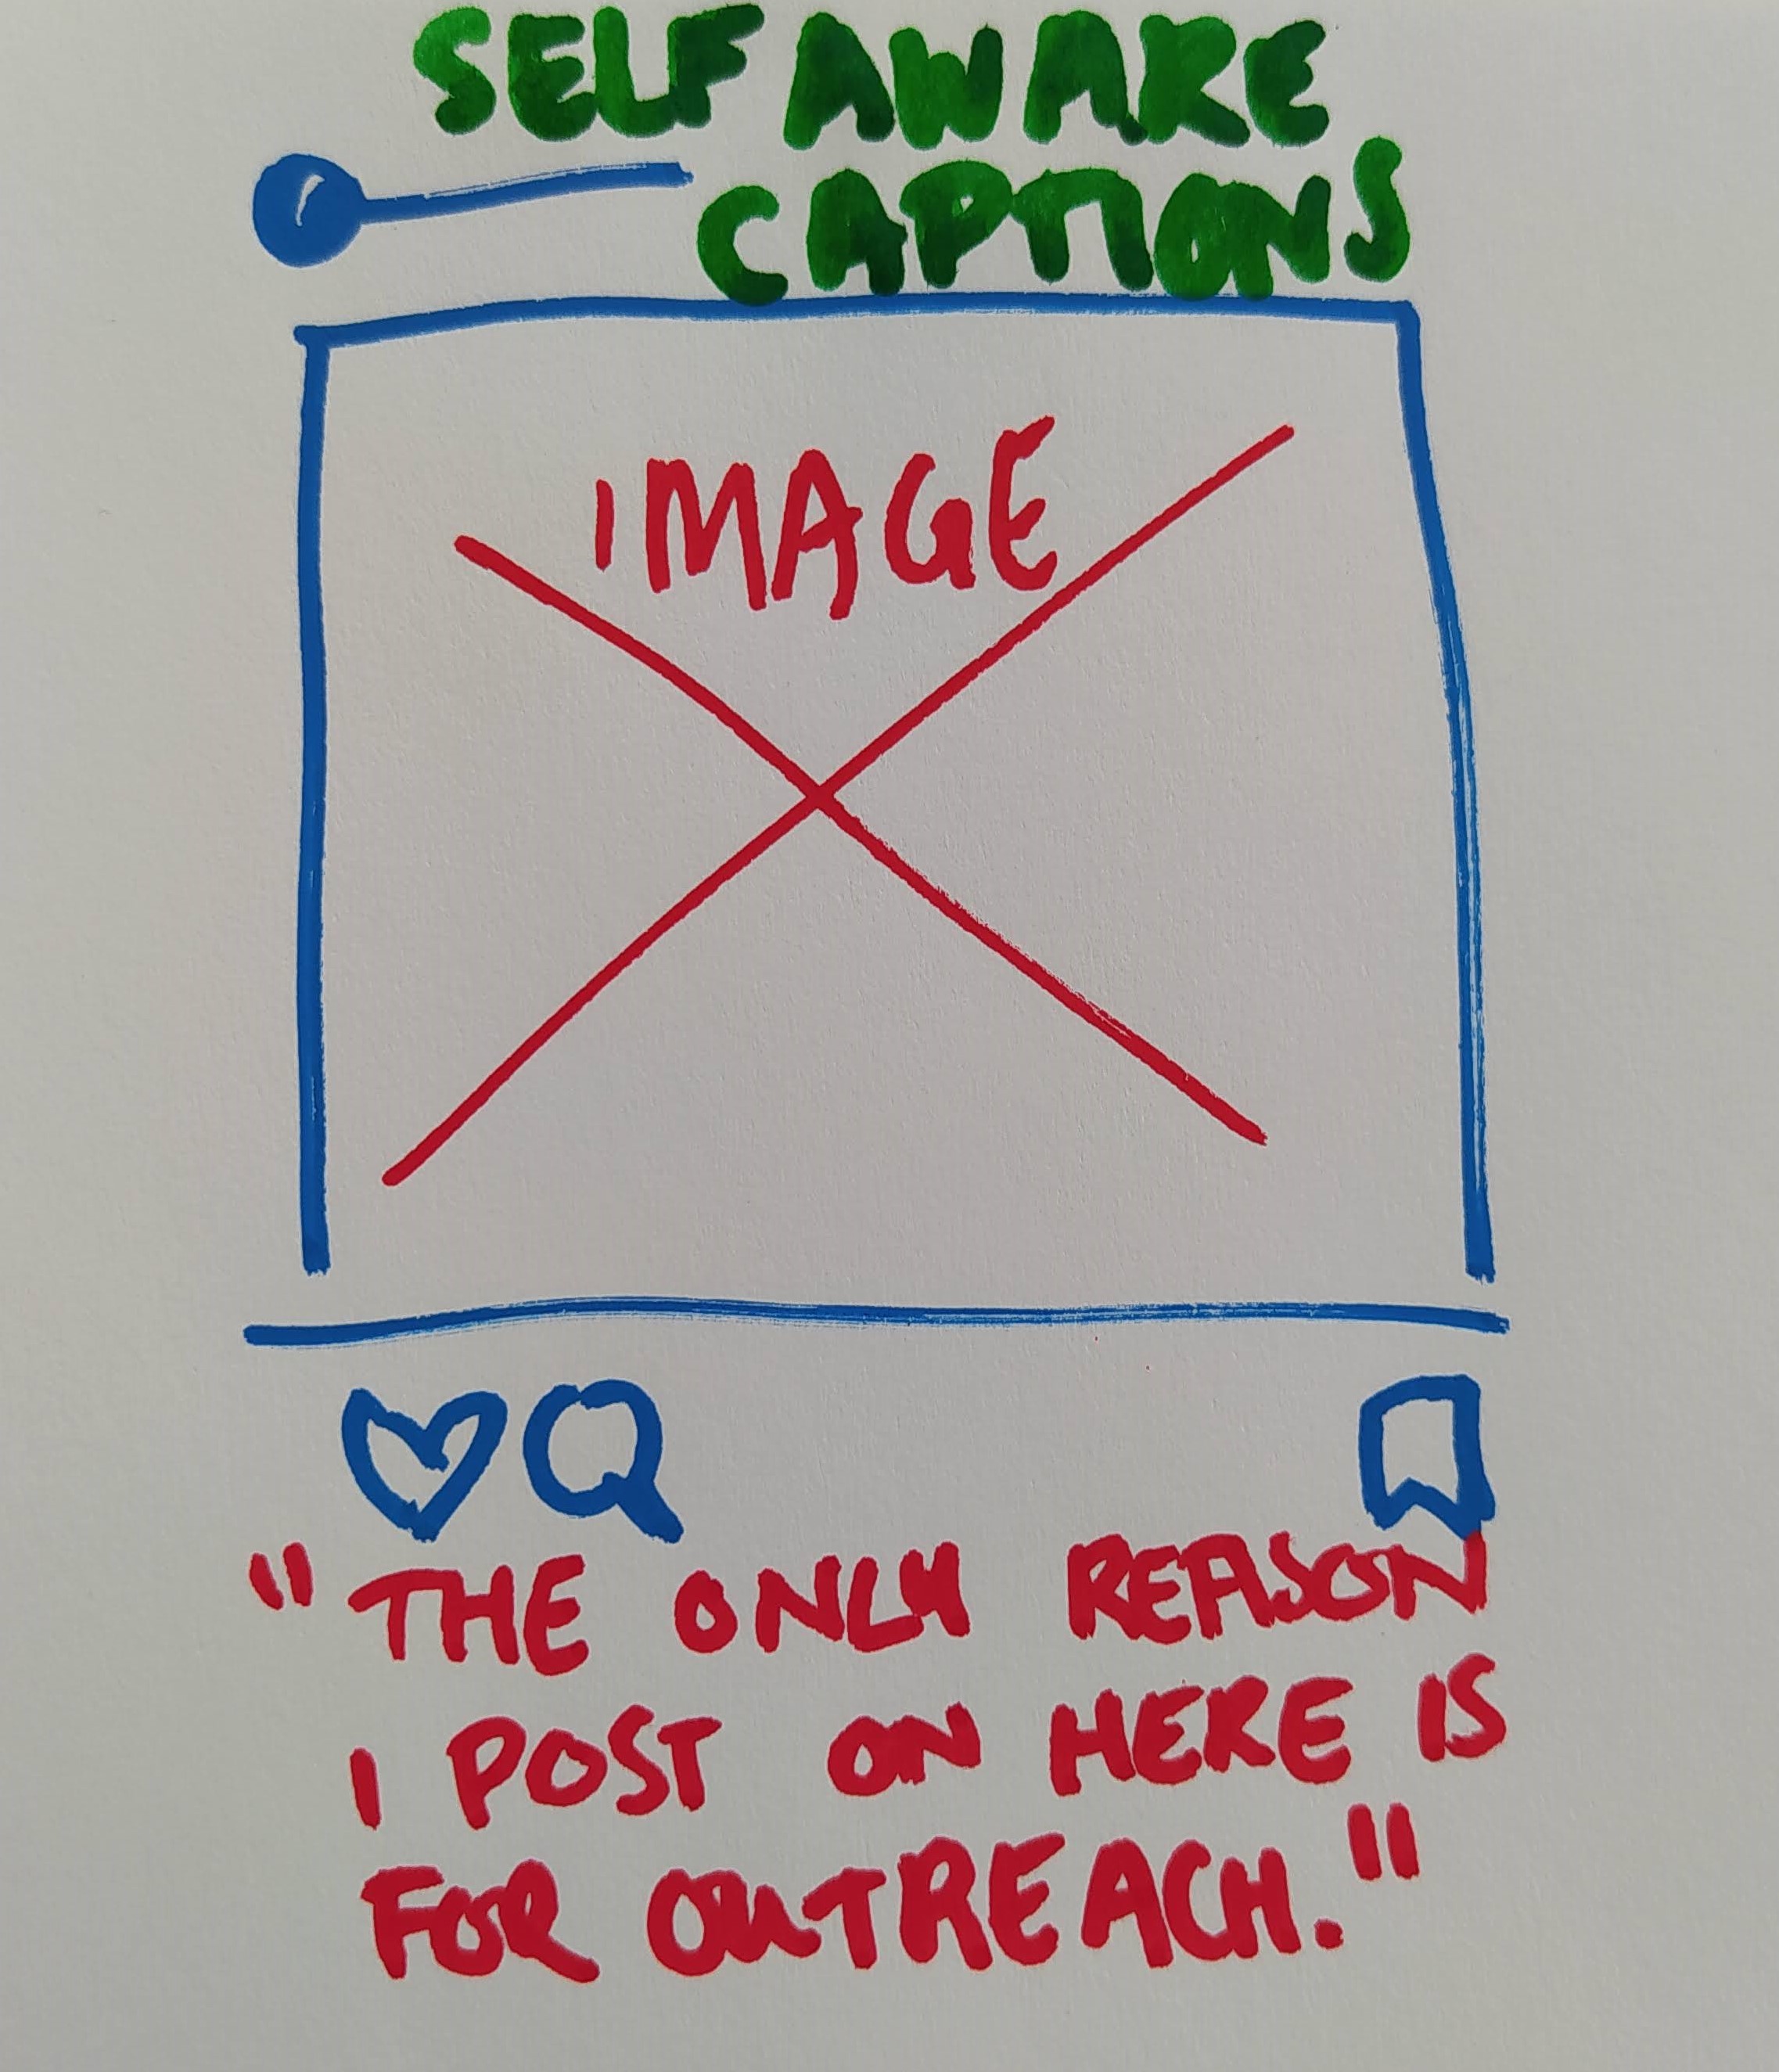 SELF AWARE
CAPTIONS
IMAGE
"THE ONLY REASON
I POST ON HERE IS
FOR OUTREACH."